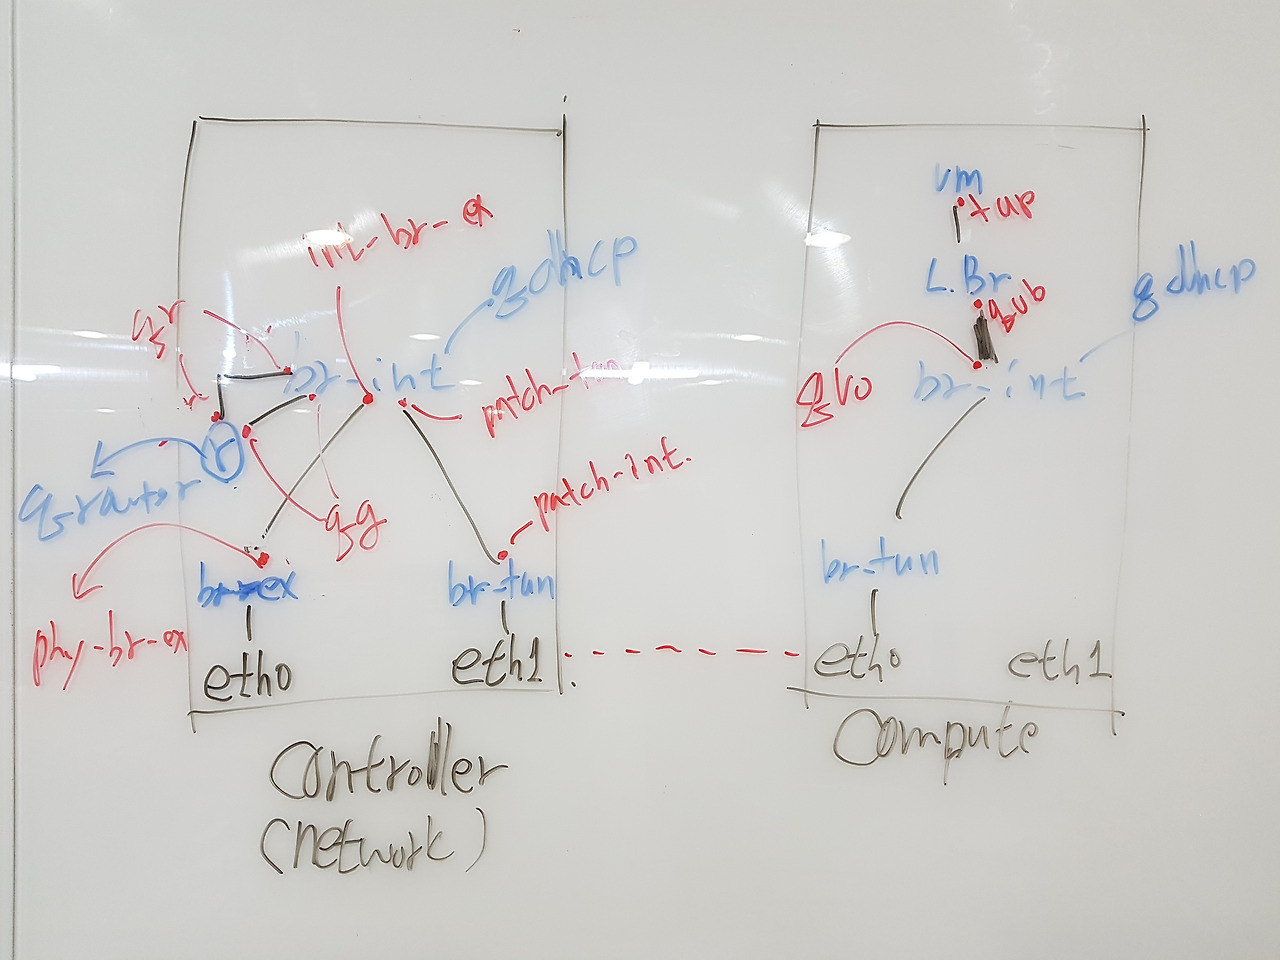 int-br-ex
qdhcp
qr
br-int
patch-tun
r
qrouter
qg
patch-int.
br-ex
br-tun
phy-br-ex
eth0
eth1
Controller
(network)
vm
tap
L.Br
qvb
qdhcp
qvo
br-int
br-tun
eth0
eth1
Compute